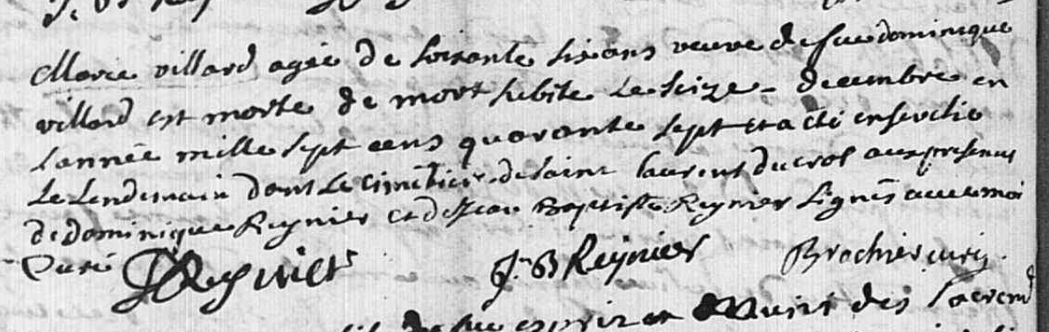 Marie villard agée de soixante six ans veuve de feu dominique
villard est morte de mort subite Le seize decembre en
L'année mille sept cens quarante sept et a eté ensevelie
Le Lendemain dans Le cimetiere de saint Laurent du cros aux presences
de dominique Reynier et de Jean Baptiste Reynier signés avec moi
Curé DReynier J B Reynier Brochier curé
esprit et Muni des sacrem